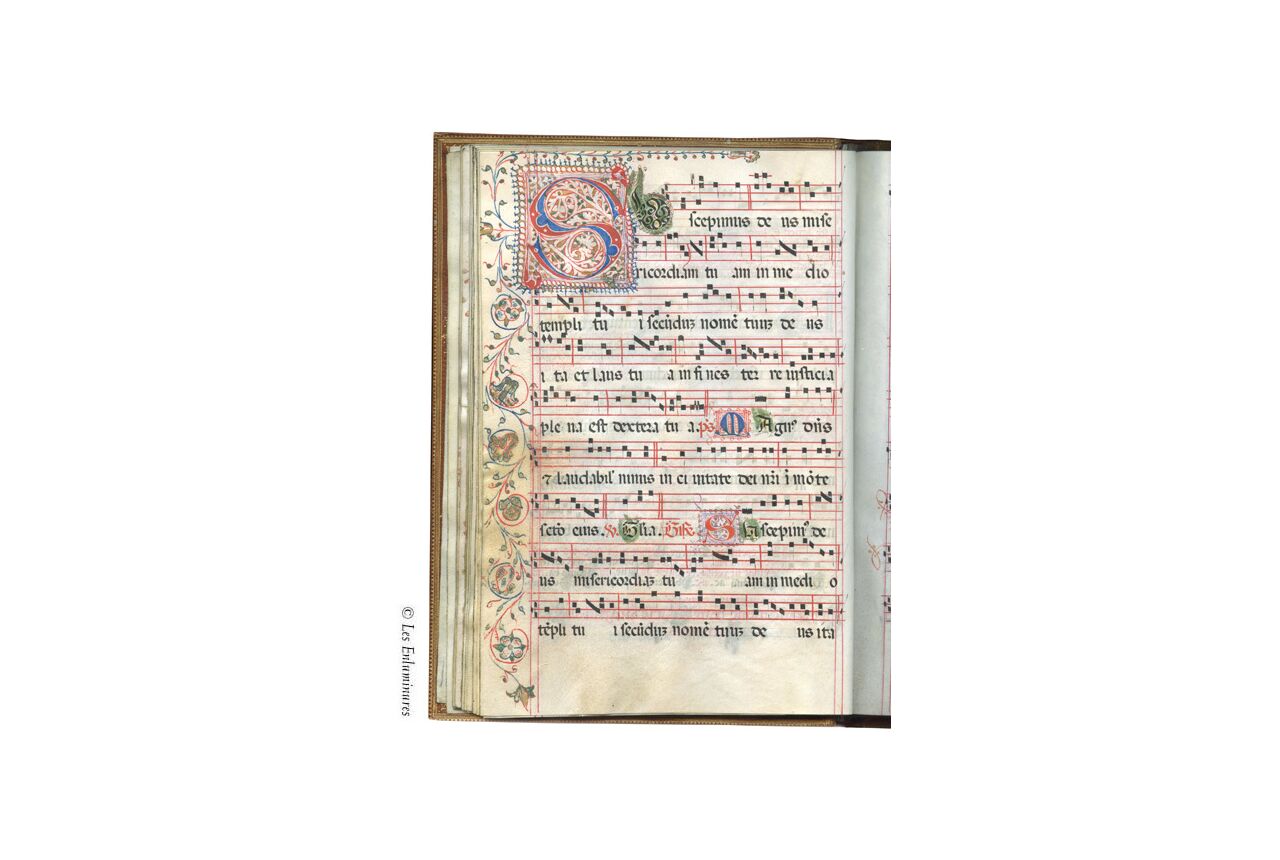 Suscepimus de us mise
ricordiam tu am in me dio
templi tu i secūduȝ nomē tuuȝ de us
i ta et laus tu a in fi nes ter re iusticia
ple na est dextera tu a. ps. M Agn⁹ dn̄s
⁊ laudabil' nimis in ci uitate dei nr̄i ī mōte
scto eius. v. Glia. S Uscepim⁹ de
us misericordiaȝ tu am in medi o
tēpli tu i secūduȝ nomē tuuȝ de us ita
© Les Enluminures